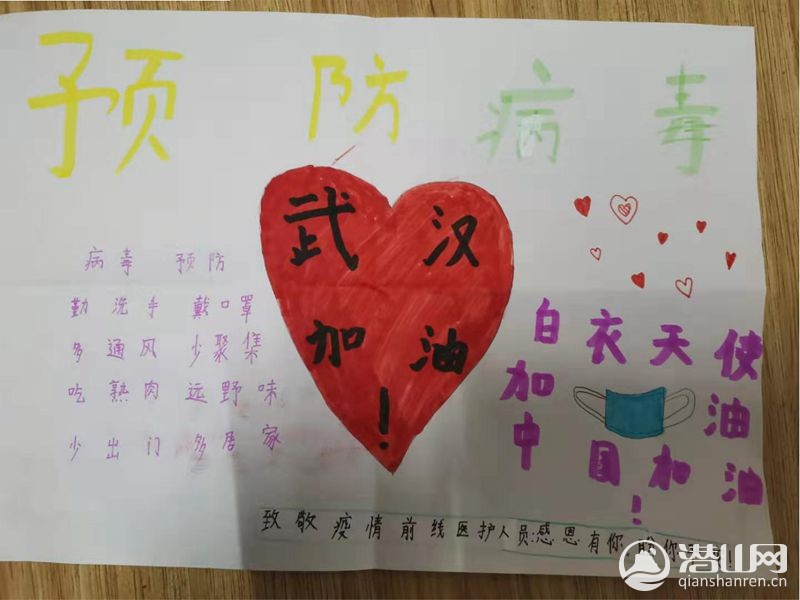 预防病毒
武汉
加油
！
病毒 预防
勤洗手 戴口罩
多通风 少聚集
吃熟肉 远野味
少出门 多居家
白衣天使
加油
中国加油
！
致敬疫情前线医护人员:感恩有你 盼你
潜山网
qianshanren.cn